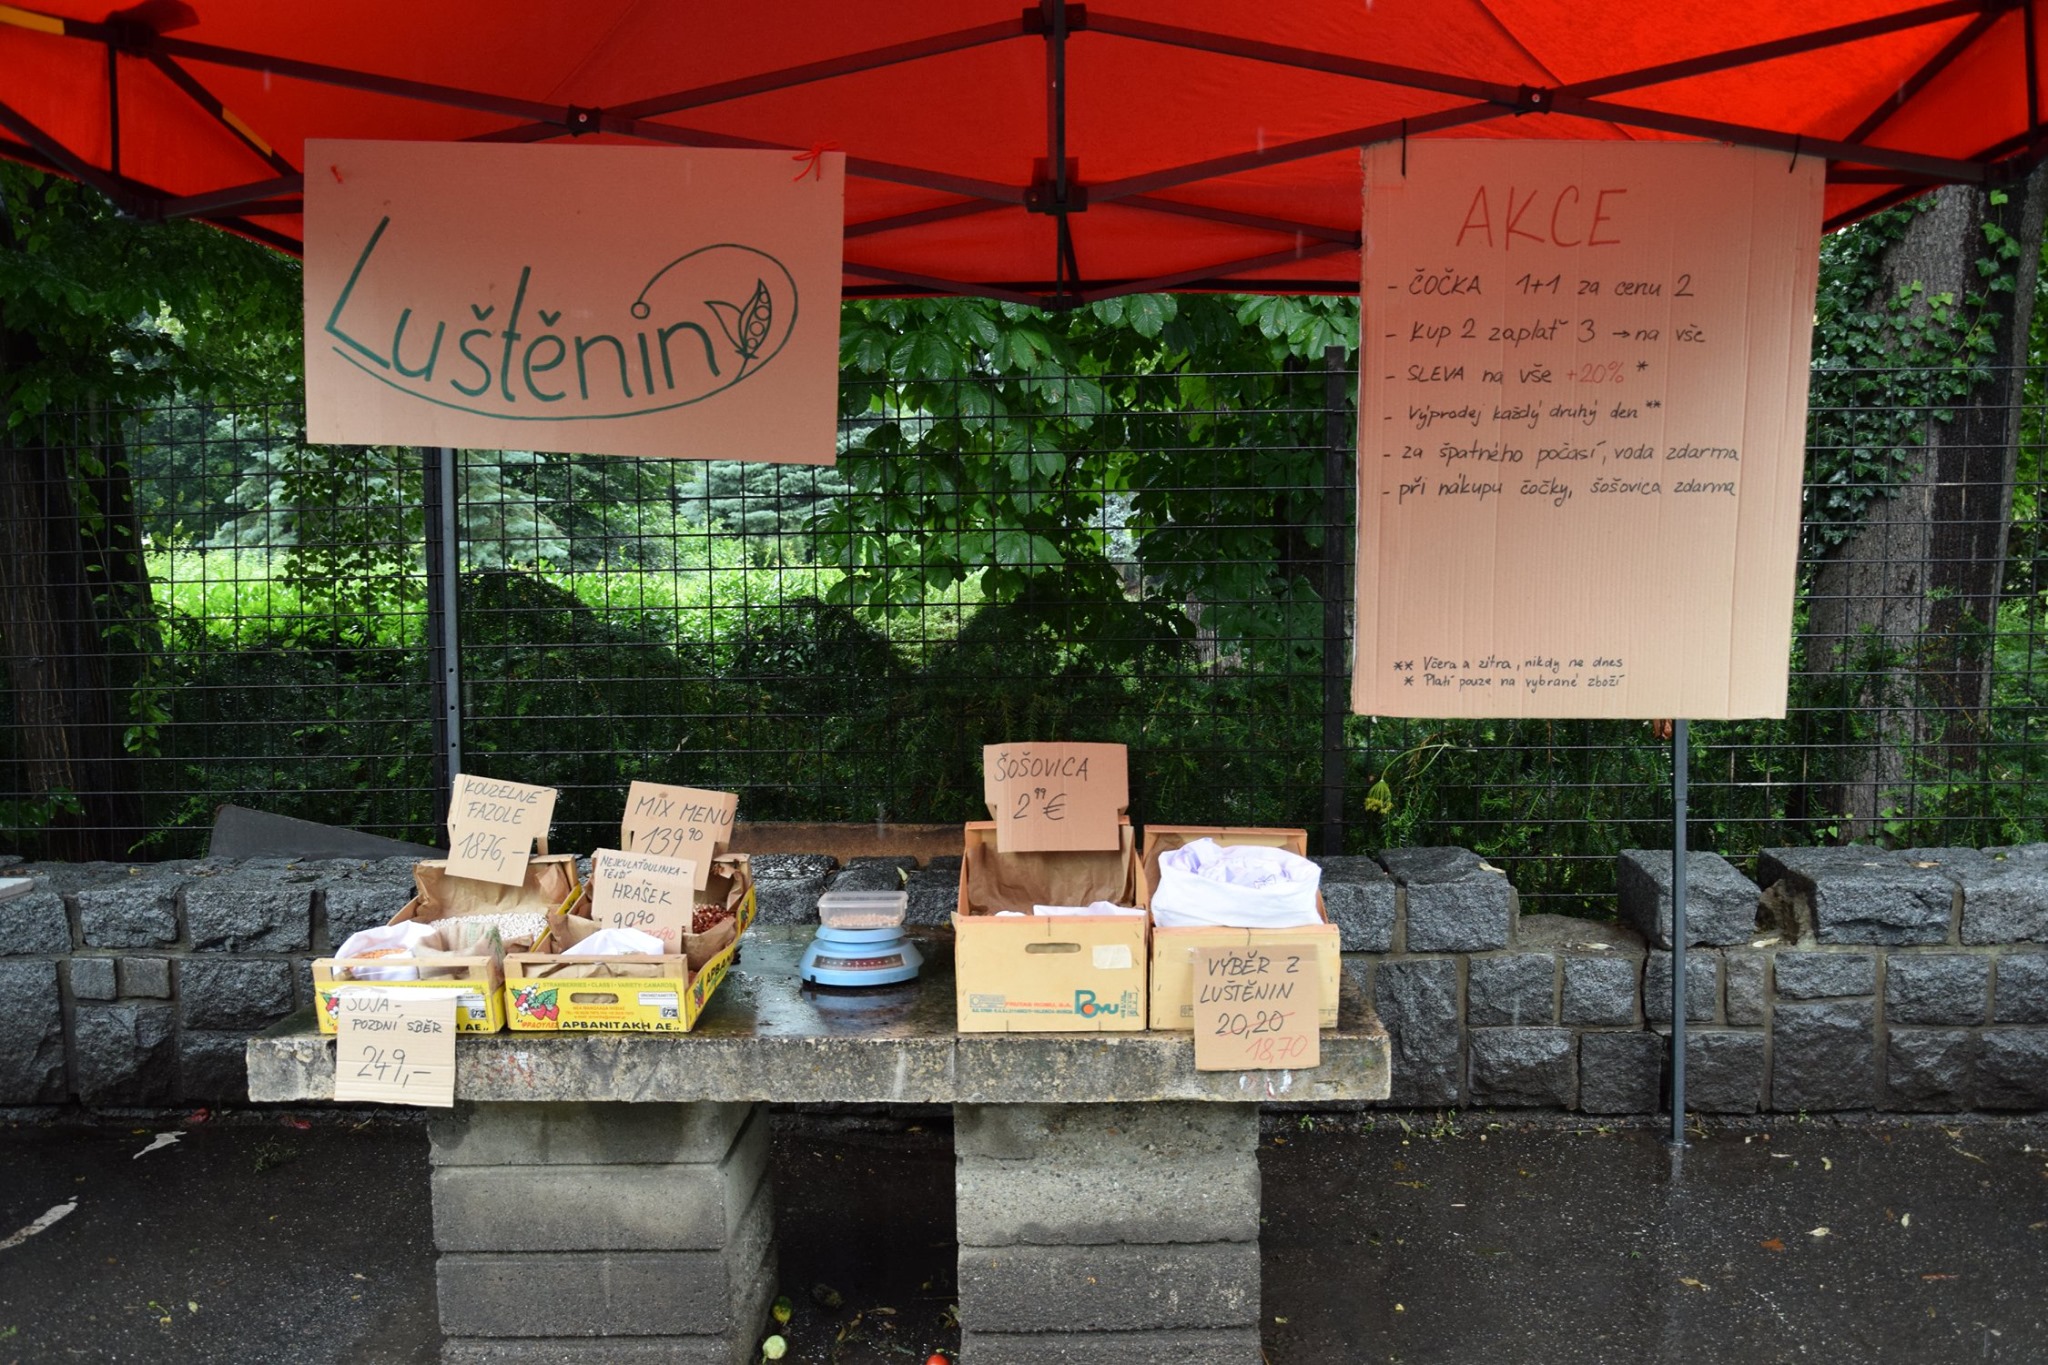 Luštěniny
AKCE
- ČOČKA 1+1 za cenu 2
- Kup 2 zaplať 3 → na vše
- SLEVA na vše +20% *
- Výprodej každý druhý den **
- za špatného počasí, voda zdarma
- při nákupu čočky, šošovica zdarma
** Včera a zítra, nikdy ne dnes
* Platí pouze na vybrané zboží
KOUZELNÉ
FAZOLE
1876,-
MIX MENU
139 90
NEJKULAŤOULINKA-
TĚJŠÍ
HRÁŠEK
90 90
ŠOŠOVICA
2 99 €
SÓJA -
POZDNÍ SBĚR
249,-
VÝBĚR Z
LUŠTĚNIN
20,20
18,70
STRAWBERRIES - CLASS I - VARIETY CAMAROSA
ΦΡΑΟΥΛΕΣ
ΑΡΒΑΝΙΤΑΚΗ ΑΕ